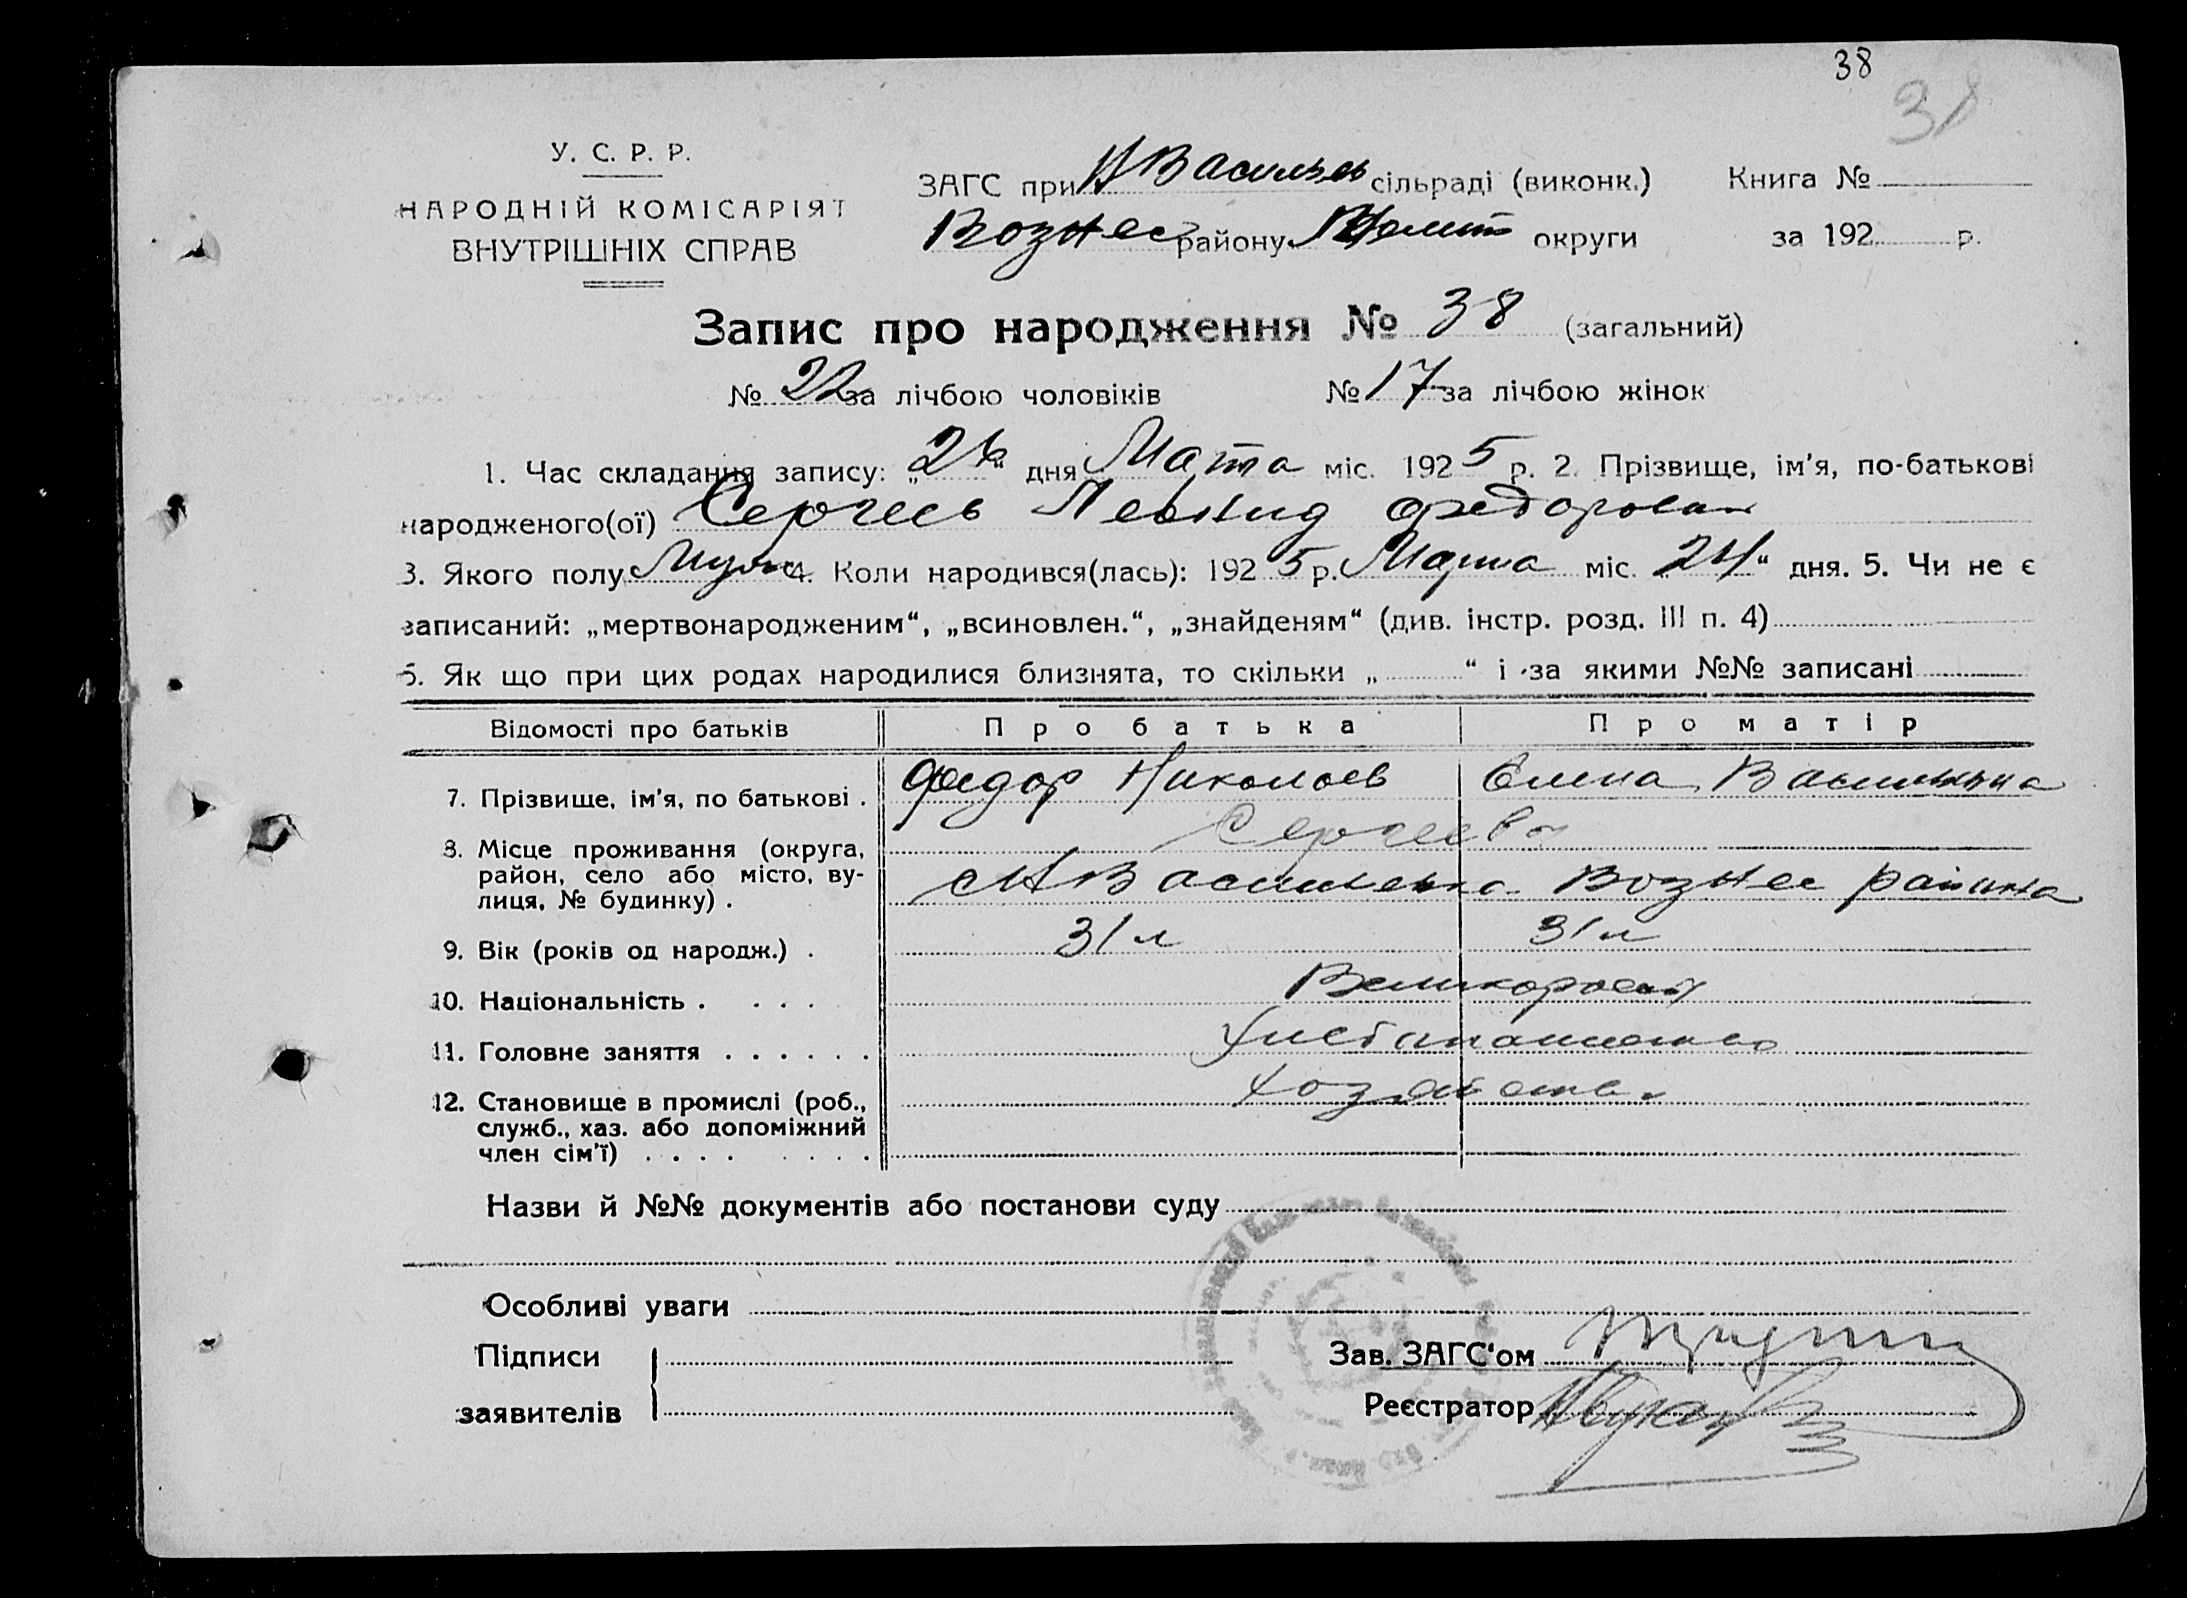 38
38
У. С. Р. Р.
НАРОДНІЙ КОМІСАРІЯТ
ВНУТРІШНІХ СПРАВ
ЗАГС при Н Васильев сільраді (виконк.) Книга №
Вознес району округи за 192 р.
Запис про народження № 38 (загальний)
№ 22 за лічбою чоловіків № 17 за лічбою жінок
1. Час складання запису: „26“ дня Марта міс. 1925 р. 2. Прізвище, ім'я, по-батькові
народженого(ої) Сергеев Леонид Федорович
3. Якого полу Муж 4. Коли народився(лась): 1925 р. Марта міс. „24“ дня. 5. Чи не є
записаний: „мертвонародженим“, „всиновлен.“, „знайденям“ (див. інстр. розд. III п. 4)
6. Як що при цих родах народилися близнята, то скільки „ “ і за якими №№ записані
Відомості про батьків Про батька Про матір
7. Прізвище, ім'я, по батькові . Федор Николаев Елена Васильевна
Сергеевы
8. Місце проживання (округа,
район, село або місто, ву-
лиця, № будинку) . с Н Васильевка Вознес района
9. Вік (років од народж.) . 31 л 31 л
10. Національність . . . . Великоросы
11. Головне заняття . . . . . . Хлебопашество
12. Становище в промислі (роб.,
служб., хаз. або допоміжний
член сім'ї) . . . . . . . . Хозяева
Назви й №№ документів або постанови суду
Особливі уваги
Підписи
заявителів
Зав. ЗАГС'ом
Реєстратор